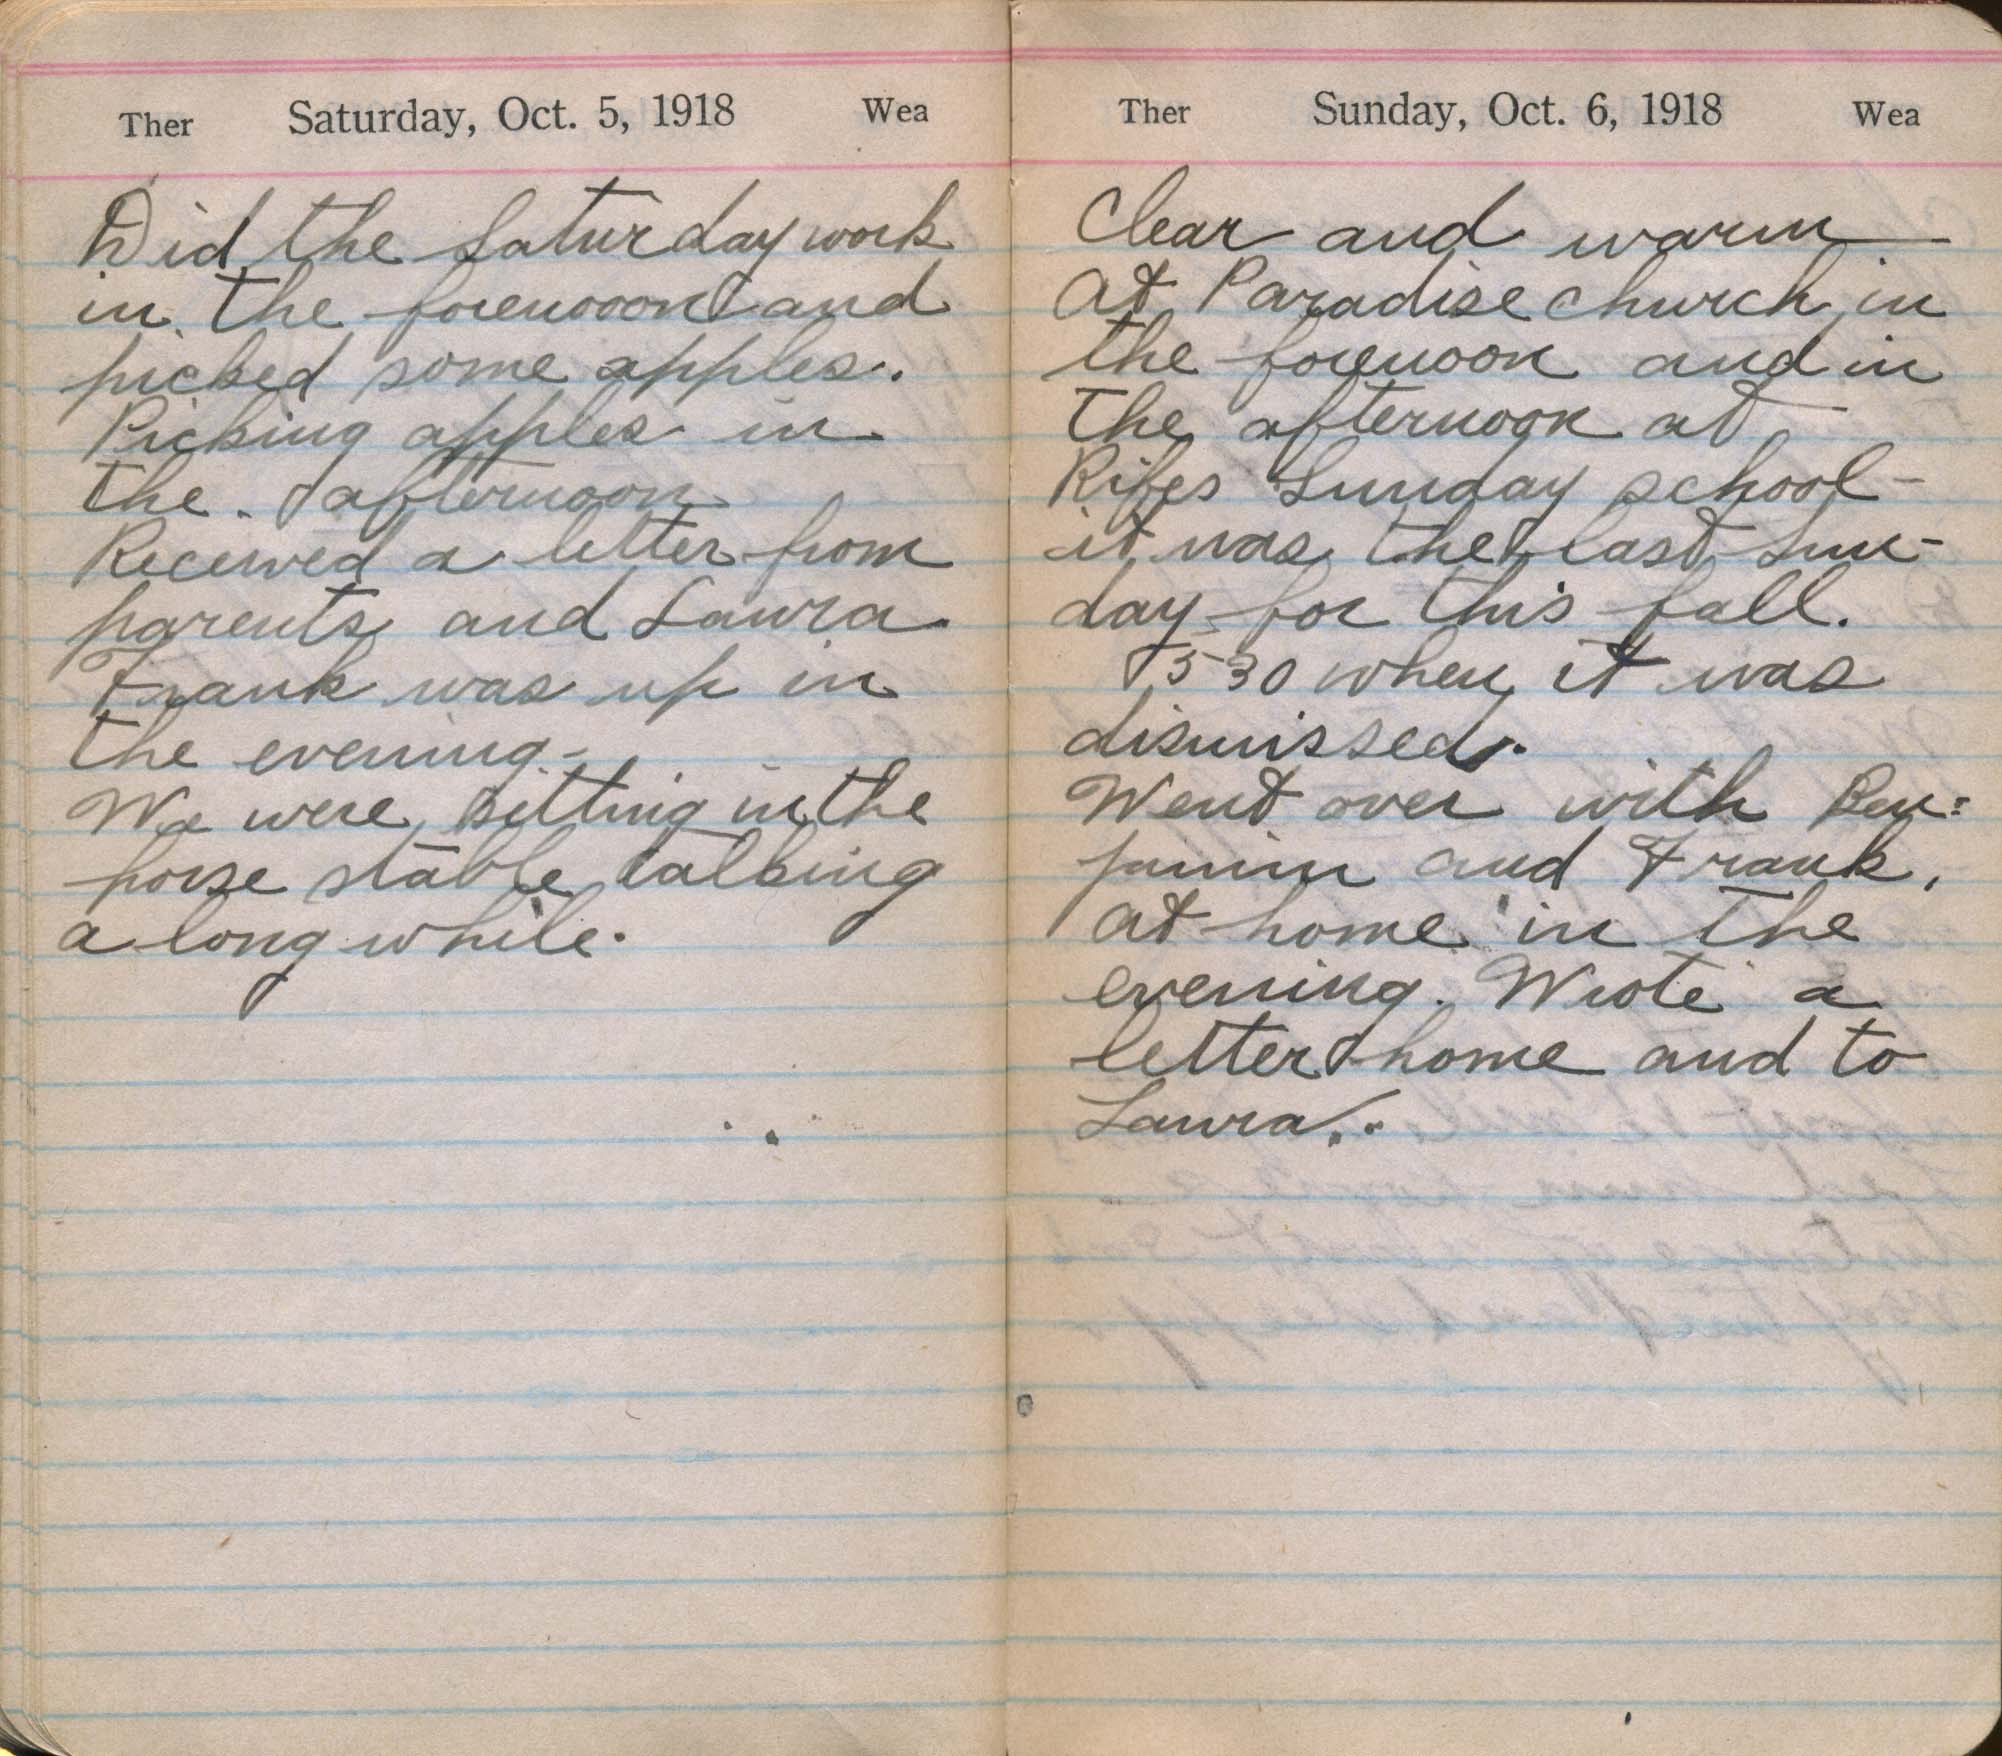 Ther Saturday, Oct. 5, 1918 Wea
Did the Saturday work
in the forenooon and
picked some apples.
Picking apples in
the. afternoon
Received a letter from
parents and Laura.
Frank was up in
the evening-
We were sitting in the
horse stable talking
a long while.
Ther Sunday, Oct. 6, 1918 Wea
Clear and warm
At Paradise church in
the forenoon and in
the afternoon at
Rifes Sunday school-
it was the last Sun-
day for this fall.
530 when it was
dismissed.
Went over with Ben=
jamin and Frank,
at home in the
evening. Wrote a
letter home and to
Laura.